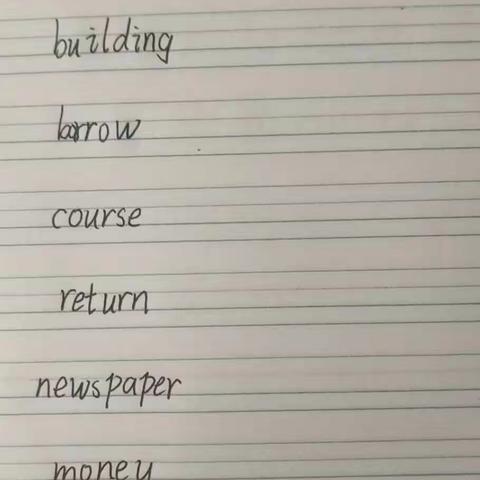 building
borrow
course
return
newspaper
money